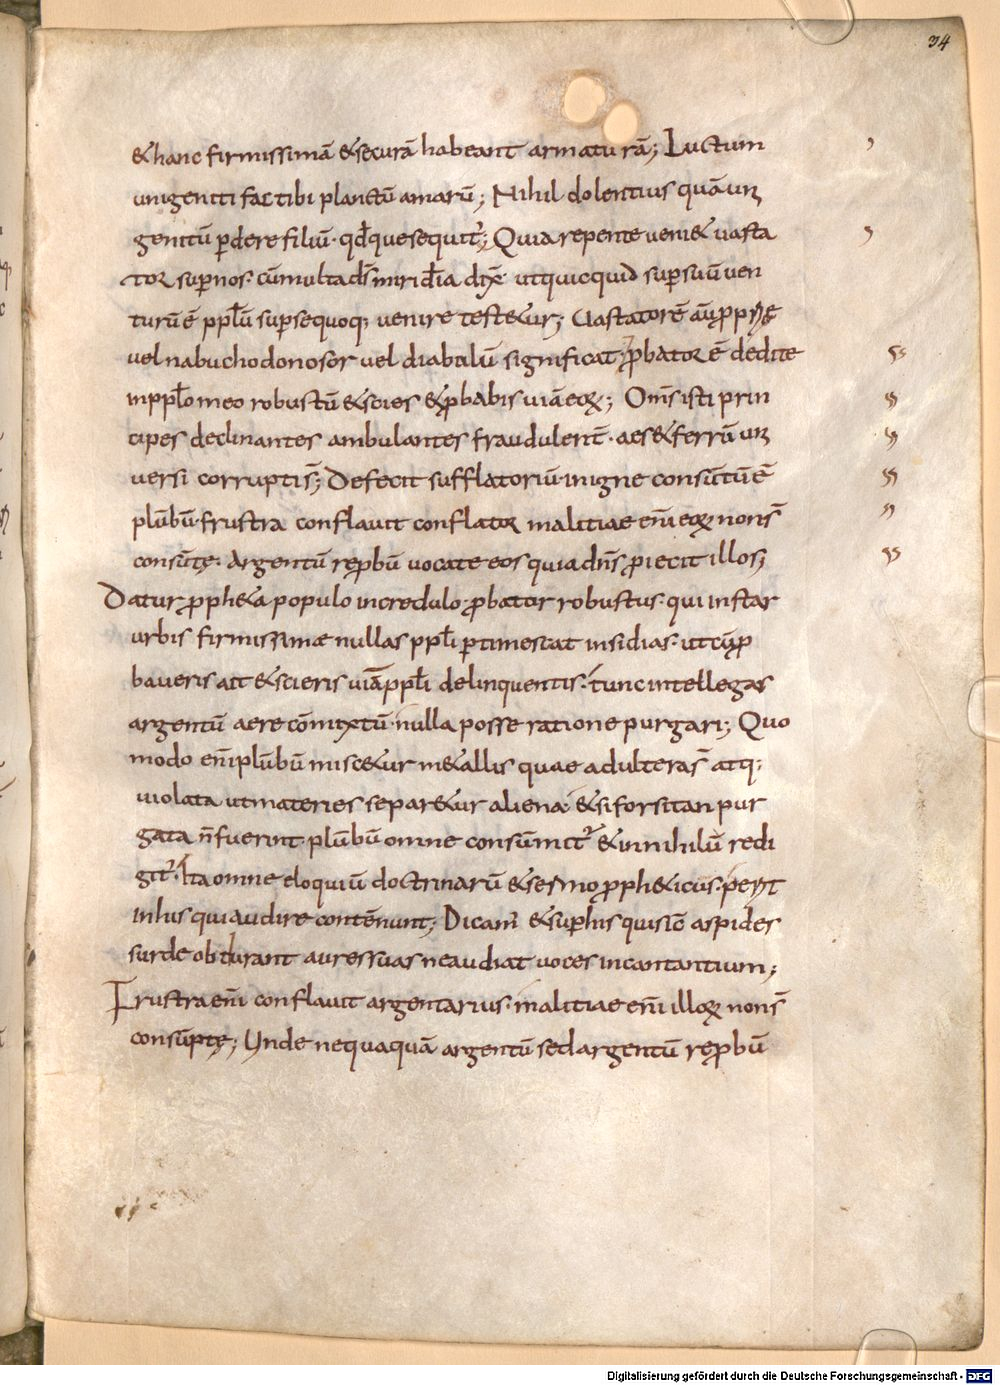 34
&hanc firmissimā &securā habeant armaturā; Luctum
unigeniti fac tibi planctū amarū; Nihil dolentius quā uni
genitū ꝑdere filiū · qd̄que sequit̄; Quia repente veni& vasta
tor suꝑ nos · cū multa dn̄s miricl̄ia dix̄ ut quicquid suꝑ suū ven
turū ē ppl̄m suꝑ se quoq; venire test&ur; Vastatorē aūt
vel nabuchodonosor vel diabulū significat · ꝓbatorē dedi te
in ppl̄o meo robustū & scies & ꝓbabis viā eoꝝ; Om̄s isti prin
cipes declinantes ambulantes fraudulent̄ · aes & ferrū uni
versi corrupti s̄; Defecit sufflatoriū · in igne consūtū ē
plūbū · frustra conflavit conflator malitiae eni̅ eoꝝ non s̄
consūtę · Argentū reꝓbū vocate eos quia dn̄s ꝓiecit illos;
Datur ꝓph&a populo incredulo · ꝓbator robustus · qui instar
urbis firmissimæ nullas ppl̄i ꝑtimescat insidias · ut cū ꝓ
baveris ait & scieris viā ppl̄i delinquentis · tunc intellegas
argentū aere cōmixtū · nulla posse ratione purgari; Quo
modo eni̅ plūbū misc&ur m&allis quae adultera s̄ atq;
violata ut materies separ&ur aliena · & si forsitan pur
gata n̄ fuerint · plūbū omne consūmit̄ & in nihilū redi
git̄ · Ita omne eloquiū doctrinarū & sermo ꝓph&icus · perit
in his qui audire contēnunt; Dicam̄ & suꝑ his qui sic̄ aspides
surde obturant aures suas ne audiat voces incantantium;
Frustra eni̅ conflavit argentarius · malitiae eni̅ illoꝝ non s̄
consūptę; Unde nequaquā argentū sed argentū reꝓbū
Digitalisierung gefördert durch die Deutsche Forschungsgemeinschaft - DFG